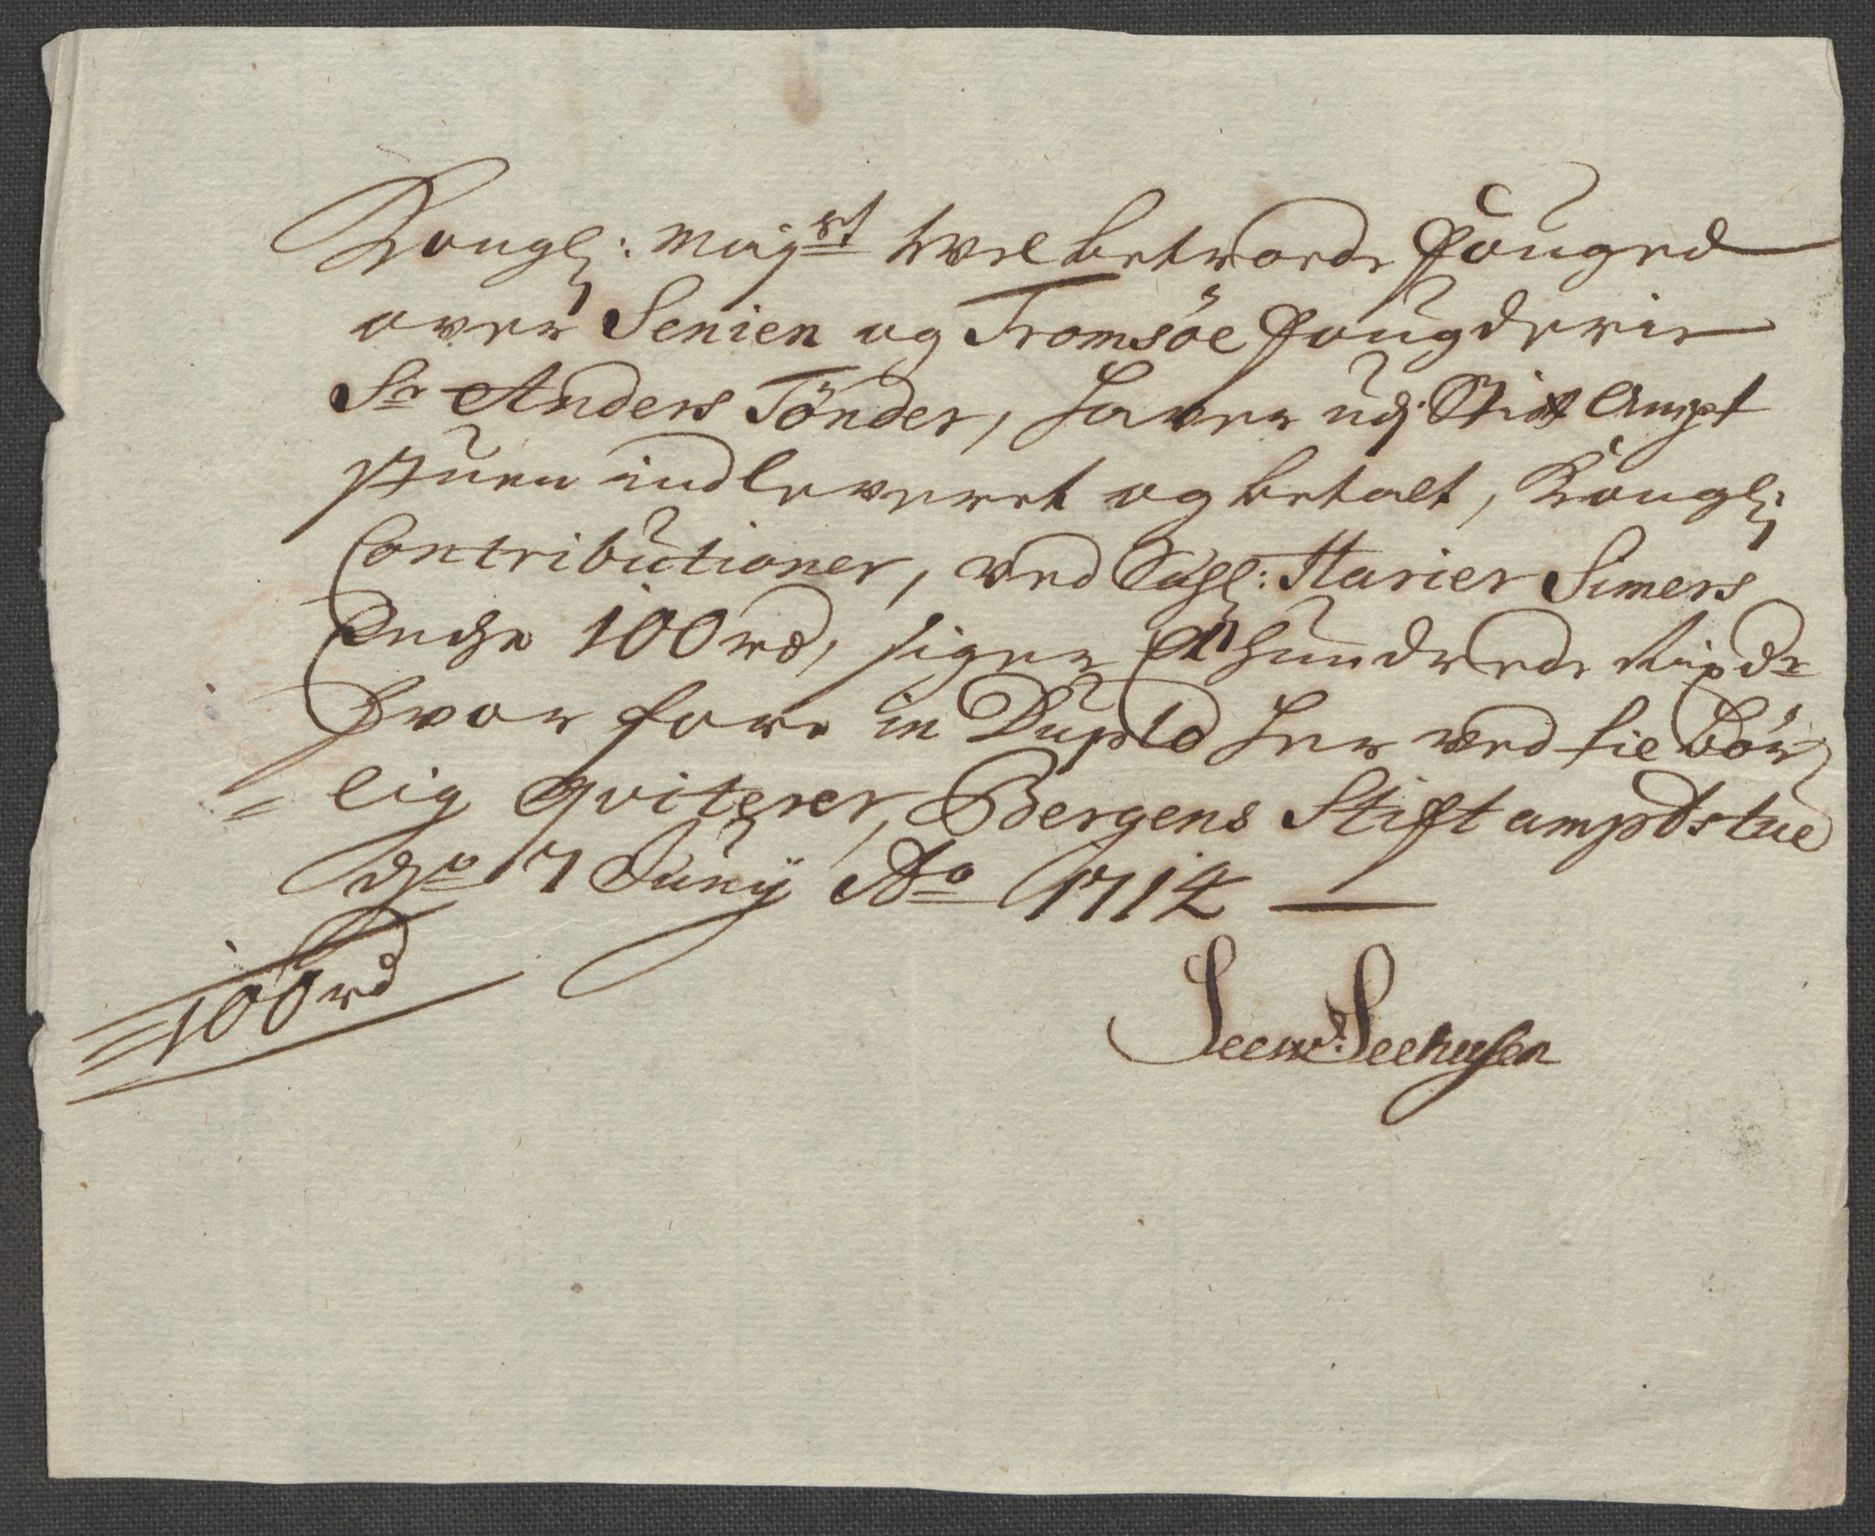 Kongl: Maijst Wel betroede fouged
over Senien og Tromsöe fougderie
Sr Anders Tönder, haver udj Stift Ampt
stuen indleveret og betalt, Kongl:
Contributioner, ved Sahl: Harier Simers
Encke 100 rd, siger Et hundrede Rixdr
hvor fore in Duplo her ved tilbör
= lig qviterer, Bergens Stiftampdstue
dn 7 Junij Ao 1714
100 rd
Seehusen